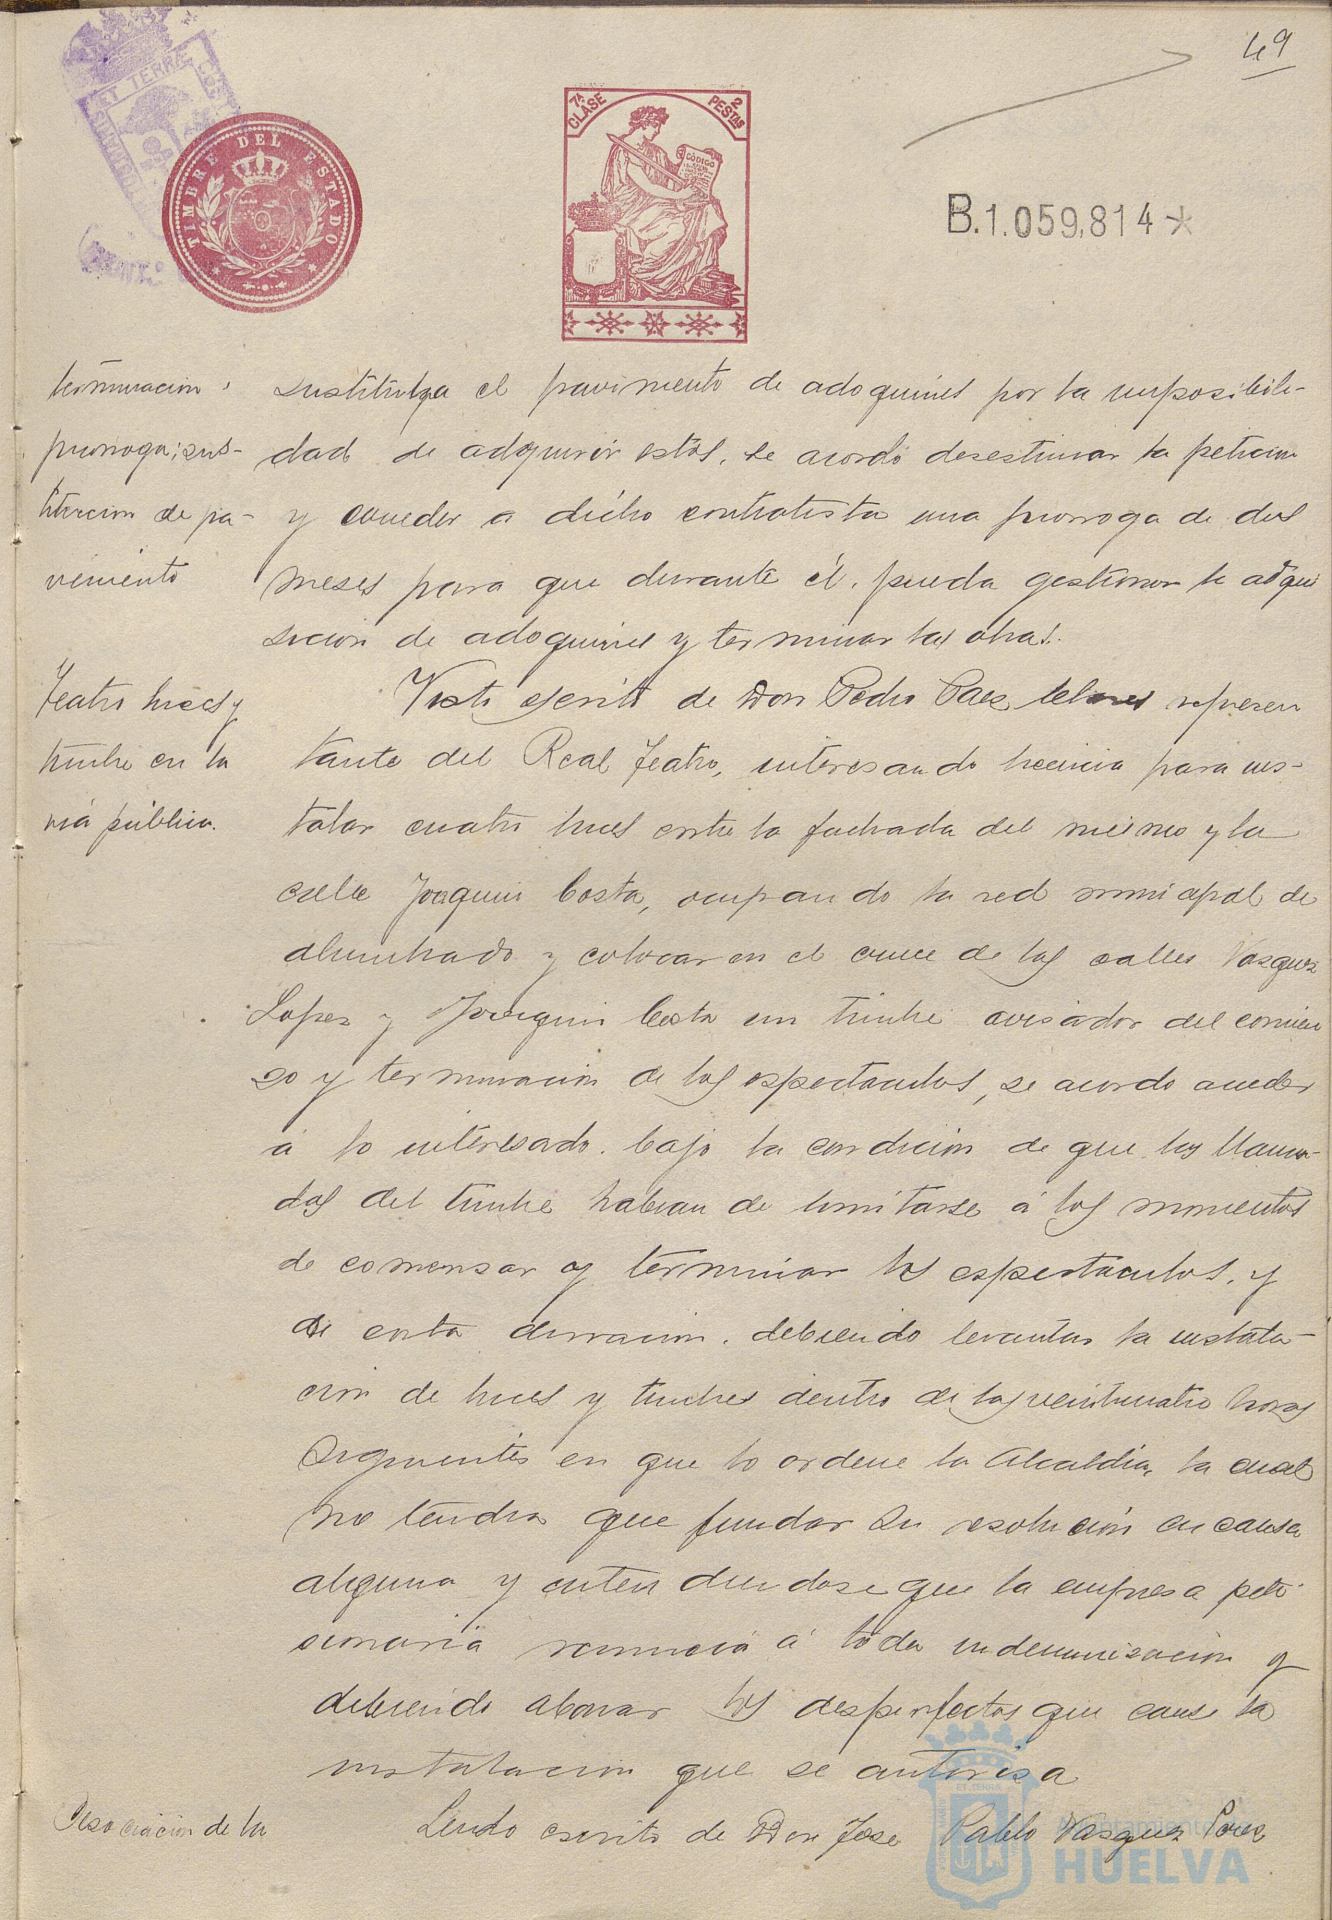 49
ET TERRÆ
CUSTODIA
TIMBRE DEL ESTADO
7ª CLASE
2 PESTAS
CÓDIGO
B.1.059,814*
terminacion,
prorroga; sus-
titucion de pa-
vimento
sustituya el pavimento de adoquines por la imposibili-
dad de adquirir estos, se acordó desestimar la peticion
y conceder a dicho contratista una prorroga de dos
meses para que durante él, pueda gestionar la adqui
sicion de adoquines y terminar las obras.
Teatro luces y
timbre en la
via pública.
Visto escrito de Don Pedro Paez represen
tante del Real Teatro, interesando licencia para ins-
talar cuatro luces entre la fachada del mismo y la
calle Joaquin Costa, ocupando la red municipal de
alumbrado y colocar en el cruce de las calles Vazquez
Lopez y Joaquin Costa un timbre avisador del comien
zo y terminacion de los espectaculos, se acordo acceder
á lo interesado bajo la condicion de que las llama-
das del timbre habran de limitarse á los momentos
de comenzar y terminar los espectaculos, y
de corta duracion, debiendo levantar la instala-
cion de luces y timbres dentro de las veinticuatro horas
siguientes en que lo ordene la Alcaldia, la cual
no tendra que fundar su resolución en causa
alguna y entendiendose que la empresa peti
cionaria renuncia á toda indemnizacion y
debiendo abonar los desperfectos que cause la
instalacion que se autoriza
Asociacion de la
Leido escrito de Don Jose Pablo Vazquez Perez
Ayuntamiento
HUELVA